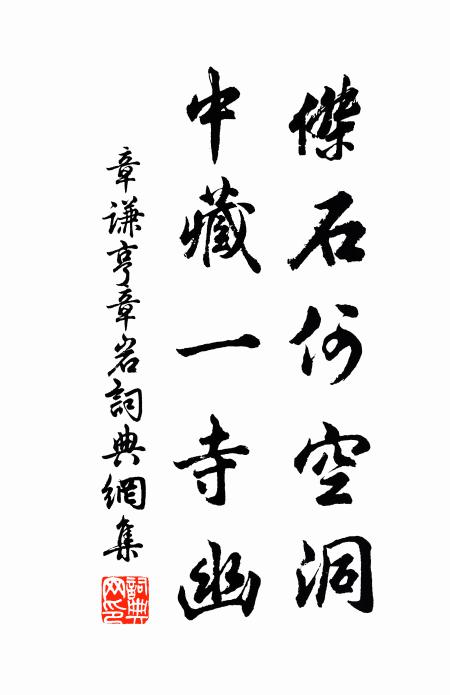 傑石何空洞
中藏一寺幽
章謙亨章岩詞典網集
詞典網印